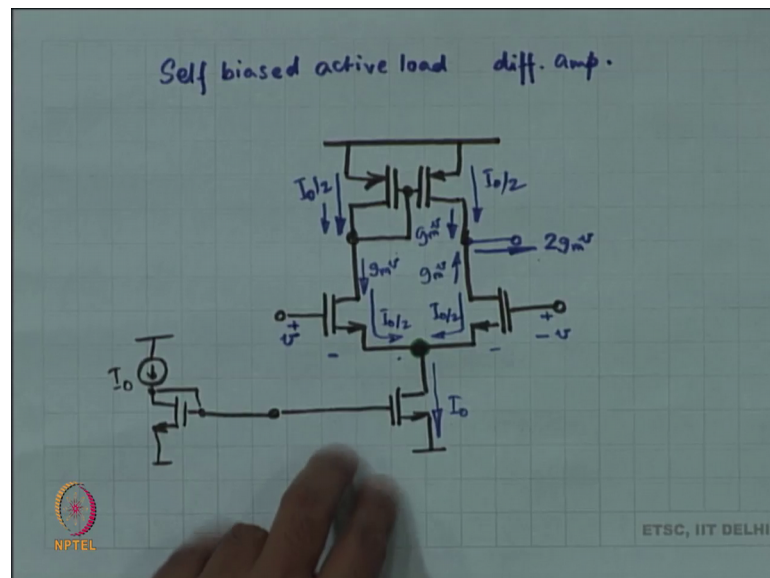 Self biased active load diff. amp.
I₀/2
I₀/2
gₘv
2gₘv
gₘv
gₘv
+
v
-
I₀/2
I₀/2
-
+
-v
I₀
I₀
NPTEL
ETSC, IIT DELHI